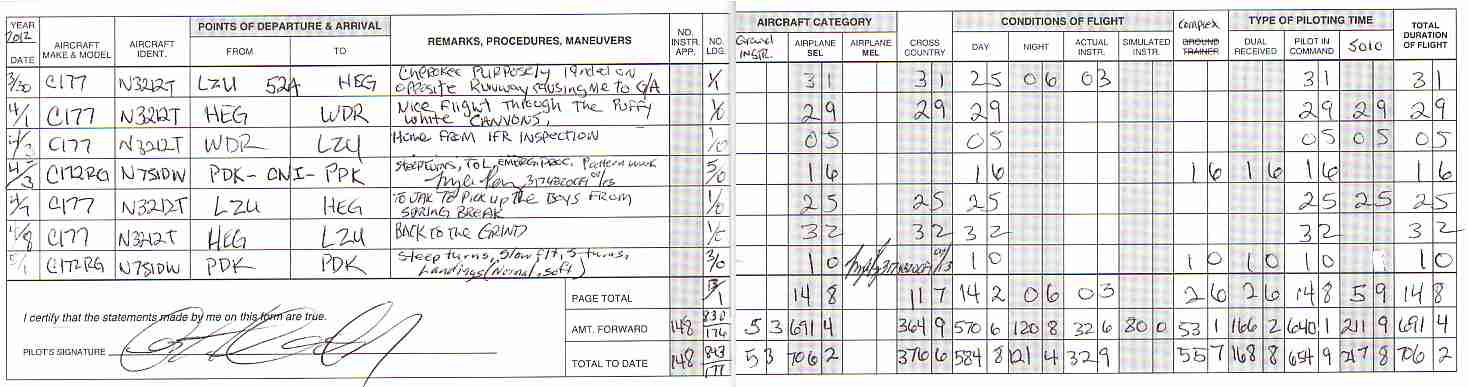 YEAR 2012 POINTS OF DEPARTURE & ARRIVAL AIRCRAFT CATEGORY CONDITIONS OF FLIGHT TYPE OF PILOTING TIME
DATE AIRCRAFT MAKE & MODEL AIRCRAFT IDENT. FROM TO REMARKS, PROCEDURES, MANEUVERS NO. INSTR. APP. NO. LDG. Ground INSTR. AIRPLANE SEL AIRPLANE MEL CROSS COUNTRY DAY NIGHT ACTUAL INSTR. SIMULATED INSTR. Complex GROUND TRAINER DUAL RECEIVED PILOT IN COMMAND SOLO TOTAL DURATION OF FLIGHT
3/30 C177 N3212T LZU 52A HEG CHEROKEE PURPOSELY landed on 3 1 3 1 2 5 0 6 0 3 3 1 3 1
opposite Runway causing me to G/A
4/1 C177 N3212T HEG WDR Nice Flight Through The Puffy 1/0 2 9 2 9 2 9 2 9 2 9 2 9
White CANYONS,
C177 N3212T WDR LZU Home FROM IFR INSPECTION 1/0 0 5 0 5 0 5 0 5 0 5
4/3 C172RG N7510W PDK- CNI- PDK Steep turns, TOL, EMERG PROC. Pattern work 5/0 1 6 1 6 1 6 1 6 1 6 1 6
3174820CFI
4/7 C177 N3212T LZU HEG TO JAX TO PICK up the BOYS FROM 2 5 2 5 2 5 2 5 2 5 2 5
SPRING BREAK
4/8 C177 N3212T HEG LZU BACK TO THE GRIND 3 2 3 2 3 2 3 2 3 2
5/1 C172RG N7510W PDK PDK Steep turns, Slow flt, S turns, 3/0 1 0 3174820CFI 1 0 1 0 1 0 1 0 1 0
Landings (Normal, soft)
PAGE TOTAL 13/1 14 8 11 7 14 2 0 6 0 3 2 6 2 6 14 8 5 9 14 8
I certify that the statements made by me on this form are true. AMT. FORWARD 148 830/176 5 3 691 4 364 9 570 6 120 8 32 6 80 0 53 1 166 2 640 1 211 9 691 4
PILOT'S SIGNATURE TOTAL TO DATE 148 843/177 5 3 706 2 376 6 584 8 121 4 32 9 55 7 168 8 654 9 217 8 706 2